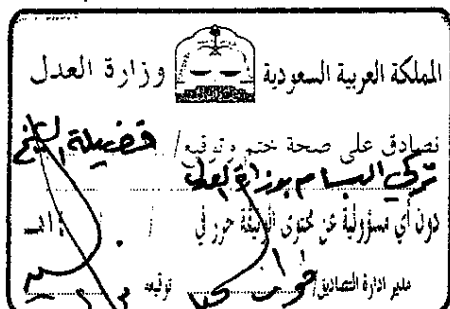 المملكة العربية السعودية وزارة العدل
نصادق على صحة ختم وتوقيع / فضيلة الشيخ
تركي البسام بوزارة العدل
دون أي مسؤولية عن محتوى الوثيقة حرر في / /
مدير ادارة التصاديق / توقيع